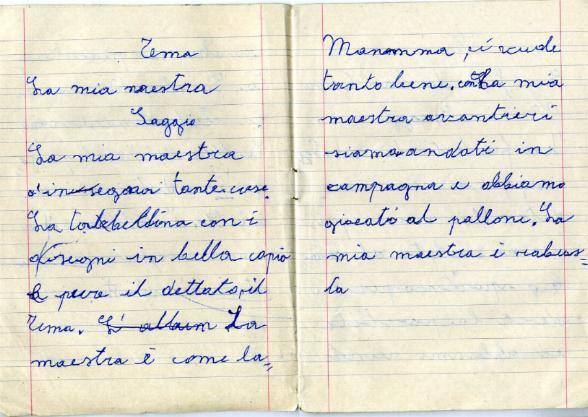 Tema
La mia maestra
Saggio
La mia maestra
c'insegna tante cose.
La tabellina con i
disegni in bella copia
e pure il dettato, il
tema. L' album La
maestra è come la
Mamma, ci vuole
tanto bene. con La mia
maestra avantieri
siamo andati in
campagna e abbiamo
giocato al pallone. La
mia maestra è
la